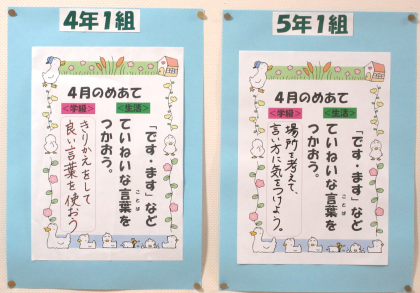 4年1組
4月のめあて
<学級>
<生活>
「です・ます」など
ていねいな言葉を
ことば
つかおう。
きりかえをして
良い言葉を使おう
5年1組
4月のめあて
<学級>
<生活>
「です・ます」など
ていねいな言葉を
ことば
つかおう。
場所を考えて、
言い方に気をつけよう。